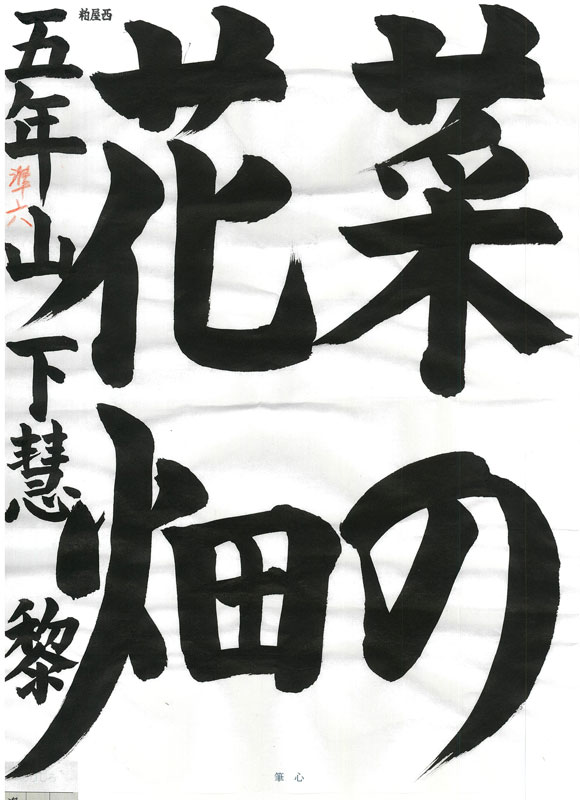 菜の
花畑
粕屋西
五年山下慧黎
準六
心筆